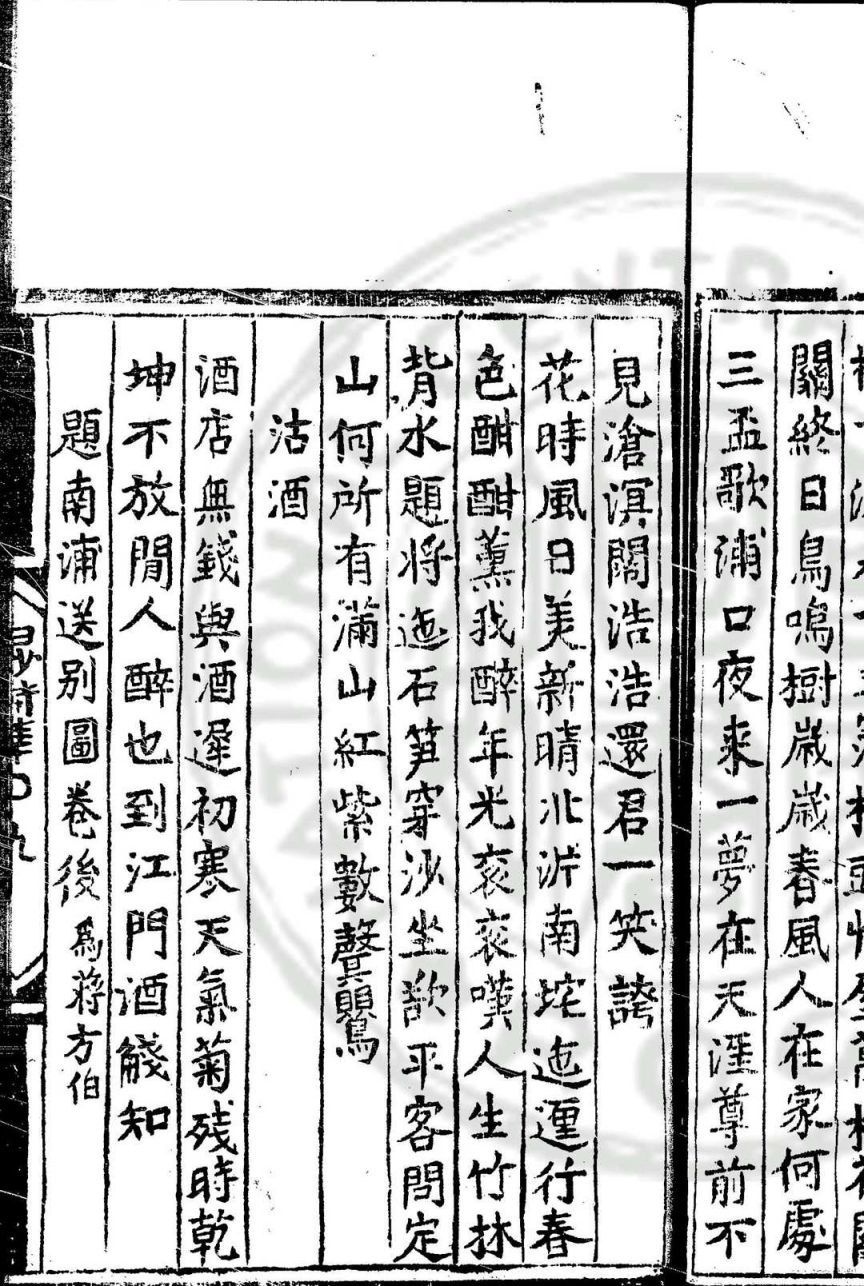 關終日鳥鳴樹歲歲春風人在家何處
三盃歌浦口夜來一夢在天涯尊前不
見滄溟闊浩浩還君一笑誇
花時風日美新晴北泝南垞迤邐行春
色酣酣薰我醉年光衮衮嘆人生竹林
背水題將遍石笋穿沙坐欲平客問定
山何所有滿山紅紫數聲鸎
沽酒
酒店無錢與酒遲初寒天氣菊殘時乾
坤不放閒人醉也到江門酒醆知
題南浦送別圖卷後爲蔣方伯